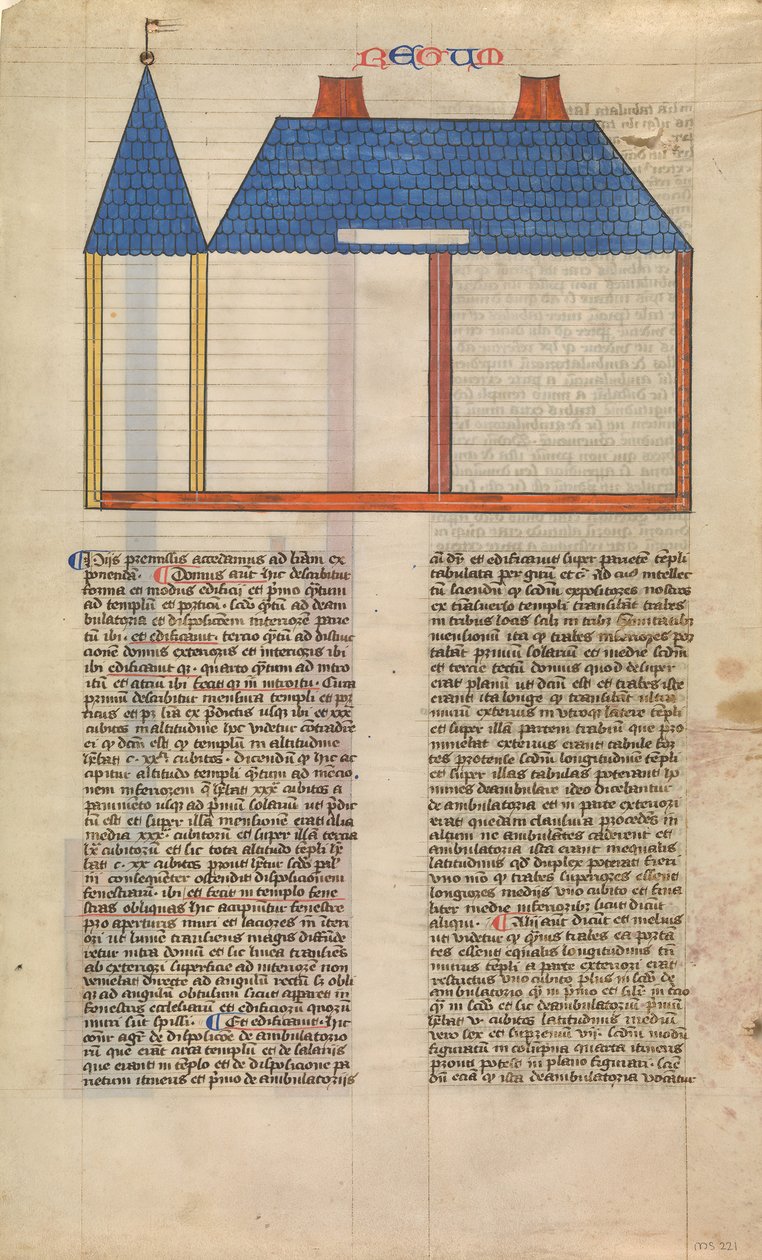 REGUM
Hiis premissis accedamus ad lr̄am ex
ponendā. Domus aūt hic describitur
forma et modus edificij et p̄mo q̄tum
ad templū et porticū. scdo q̄tū ad deam
bulatoria et disposicoēm interiorem parie
tū ibi. et edificauit. tercio q̄tū ad distinc
cionē domus exterioris et interioris ibi
ibi edificauit qr̄. quarto q̄tum ad intro
itū et atriū ibi fecit qr̄ in introitu. Circa
primū describitur mensura templi et por
ticus et pꝫ lr̄a ex p̄dictis usqꝫ ibi et xxx
cubitos in altitudine hoc videtur contradice
ei qd̄ dcm̄ est qꝫ templū in altitudine
hēbat c. xx cubitos. dicendū qꝫ hic ac
cipitur altitudo templi q̄tum ad mēcio
nem inferiorem q̄ hēbat xxx cubitos a
pauimēto usqꝫ ad p̄mū solariū ut p̄dic
tū est et super illā mensionē erat alia
media xxx cubitorū et super illā tercia
lx cubitorū et sic tota altitudo tēpli hē
bat c. xx cubitos prout hētur scdo pal̄
in consequēter ostendit disposicionem
fenestrarū. ibi et fecit in templo fene
stras obliquas hic accipiūtur fenestre
pro aperturis muri et laciores in īteri
ori ut lumē transiens magis diffūde
retur intra domū et sic linea transiēs
ab exteriori superficie ad interiorē non
veniebat directe ad angulū rectū sꝫ obli
qꝫ ad angulū obtusum sicut apparet in
fenestris ecclesiarū et edificiorū quorū
muri sūt spissi. Et edificauit. hic
cōr agr̄ de disposicoē de ambulatorio
rū que erāt circa templū et de salariis
que erant in tēplo et de disposicōne pa
rietum itineris et p̄mo de ambulatoriis
cū dr̄. et edificauit super parietē templi
tabulata per girū etc. Ad cuiꝰ intellec
tū sciendū qꝫ scdm̄ expositores nostros
ex trāsuerso templi transibāt trabes
in tribus locis scilꝫ in tribꝫ
mensionū ita qꝫ trabes inferiores por
tabāt primū solariū et medie scdm̄
et tercie tectū domus quod desuper
erat planū ut dcm̄ est et trabes iste
erant ita longe qꝫ transibāt ultra
murū exterius in utroqꝫ latere templi
et super illā partem trabiū que pro
minebat exterius erant tabule for
tes protense scdm̄ longitudinē templi
et super illas tabulas poterant ho
mines deambulare ideo dicebantur
deambulatoria et in parte exteriori
erat quedam clausura procedēs in
altum ne ambulātes caderent et
ambulatoria ista erant inequalis
latitudinis qd̄ duplex poterat fieri
vno mō qꝫ trabes superiores essent
longiores mediis vno cubito et sīa
liter medie inferioribꝫ sicut dicūt
aliqui. Alij aūt dicūt et melius
ut videtur qꝫ q̄uis trabes ea portā
tes essent equalis longitudinis tn̄
murus tēpli a parte exteriori erat
restrictus vno cubito plus in scdo de
ambulatorio q̄ in p̄mo et silr̄ in tcio
q̄ in scdo et sic deambulatoriū p̄mū
hēbat v. cubitos latitudinis mediū
vero sex et supremū vij. scdm̄ modū
figuratū in columpna quarta itineris
prout potest in plano figurari. scie
dū eciā qꝫ ista deambulatoria vocatur
MS 221